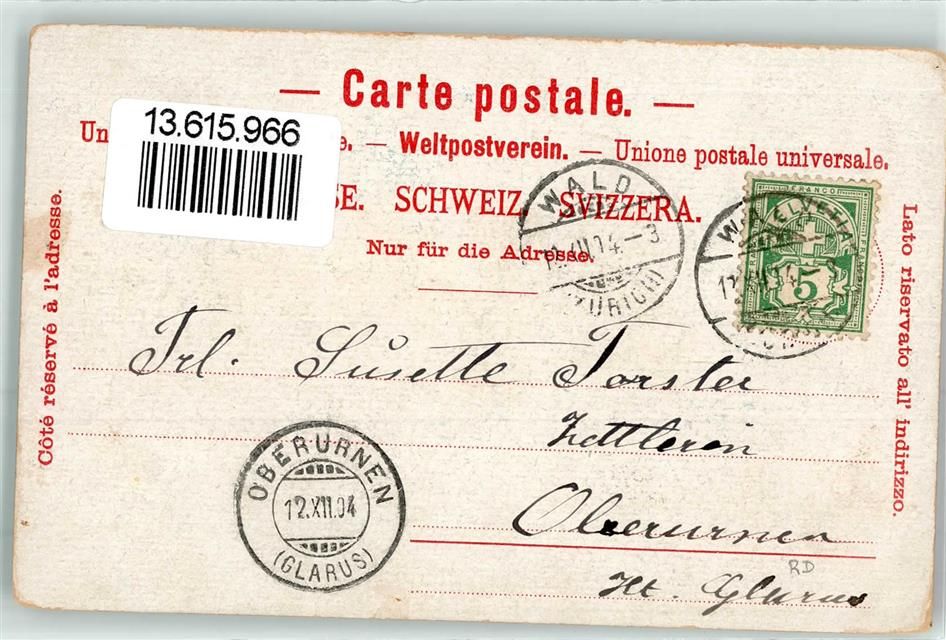 — Carte postale. —
13.615.966
Un e. — Weltpostverein. — Unione postale universale.
SE. SCHWEIZ. SVIZZERA.
Nur für die Adresse.
Côté réservé à l'adresse.
Lato riservato all' indirizzo.
WALD
XII.04.–3
(ZÜRICH)
HELVETIA
FRANCO
5
Frl. Susette Forster
Zettlerin
Oberurnen
Kt. Glarus
RD
OBERURNEN
12.XII.04
(GLARUS)